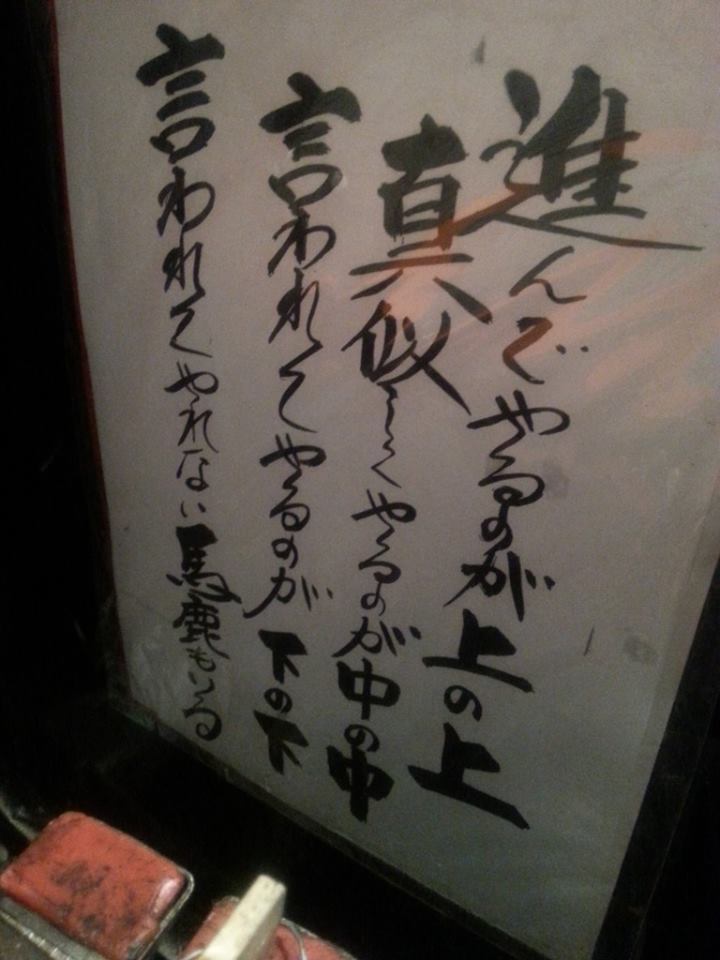 進んでやるのが上の上
真似してやるのが中の中
言われてやるのが下の下
言われてやれない馬鹿もいる